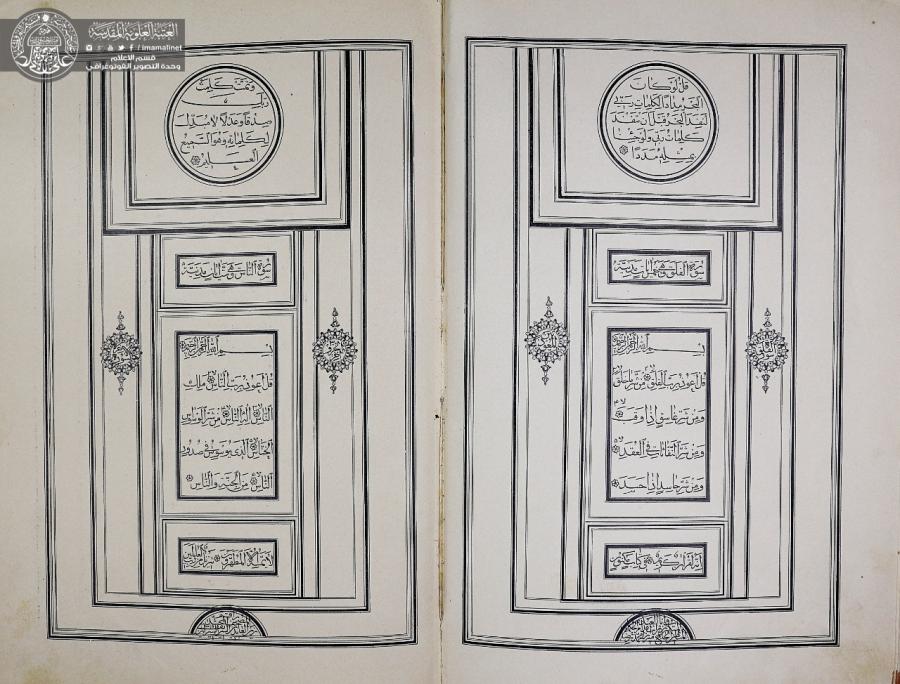 العتبة العلوية المقدسة
/ imamalinet
قسم الاعلام
وحدة التصوير الفوتوغرافي
قل لو كان
البحر مدادا لكلمات ربي
لنفد البحر قبل ان تنفد
كلمات ربي ولو جئنا
بمثله مددا
سورة الفلق وهي خمس ايات مدنية
بسم الله الرحمن الرحيم
قل اعوذ برب الفلق من شر ما خلق
ومن شر غاسق اذا وقب
ومن شر النفاثات في العقد
ومن شر حاسد اذا حسد
انه لقرآن كريم في كتاب مكنون
وتمت كلمت
ربك
صدقا وعدلا لا مبدل
لكلماته وهو السميع
العليم
سورة الناس وهي ست ايات مدنية
بسم الله الرحمن الرحيم
قل اعوذ برب الناس ملك
الناس اله الناس من شر الوسواس
الخناس الذي يوسوس في صدور
الناس من الجنة والناس
لا يمسه الا المطهرون تنزيل من رب العالمين